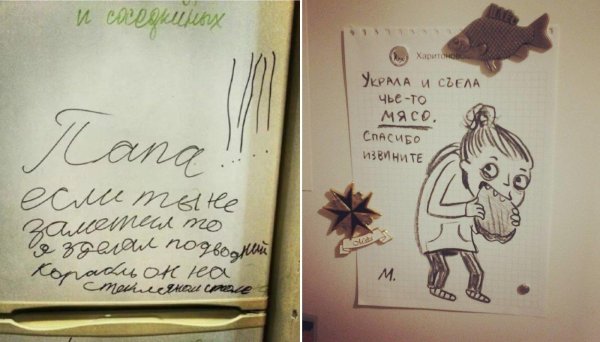 и соседкиных
Папа!!!!
если ты не
заметил то
я зделал подводний
корабль он на
стекляном столе
Харитонов
Украла и съела
чье-то
мясо.
спасибо
извините
М.